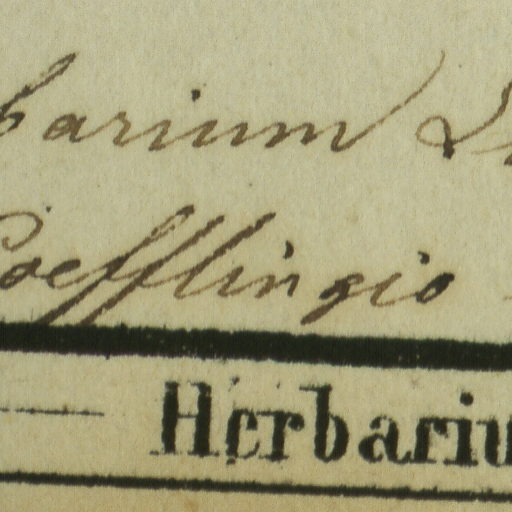 barium
oefflingio
Herbariu